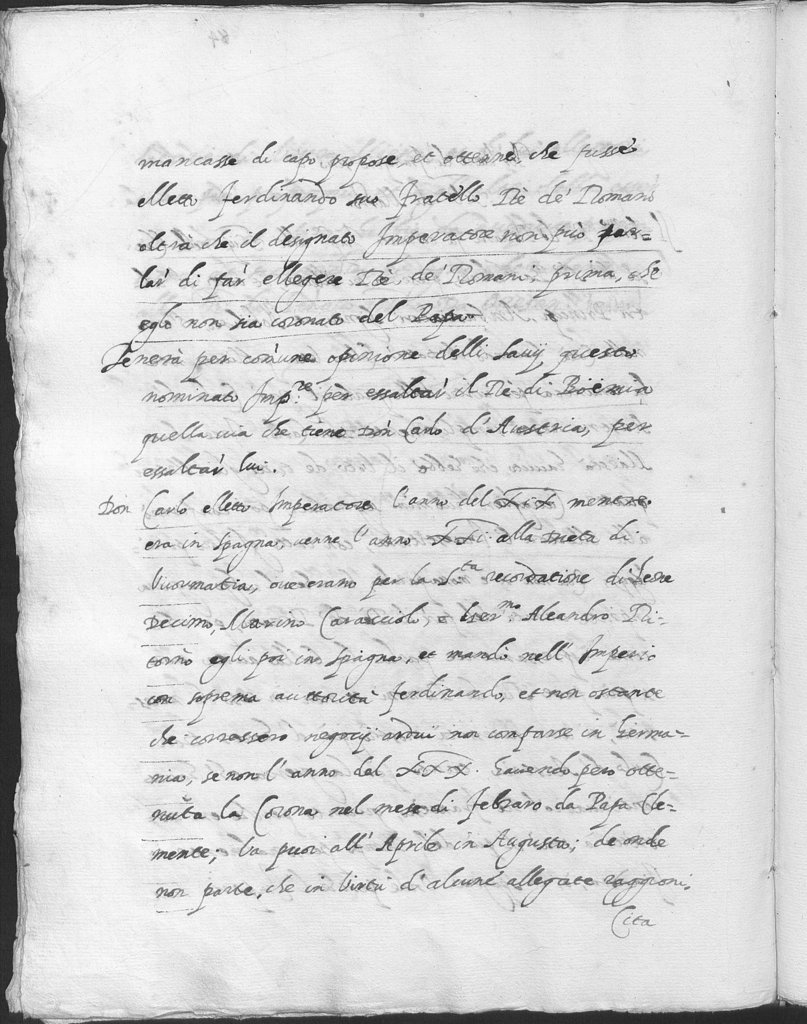 mancasse di capo, propose, et ottenne, che fusse
eletto Ferdinando suo fratello Rè de' Romani
oltra che il designato Imperatore non può par=
lar di far ellegere Rè, de' Romani, prima, che
egli non sia coronato del Papa.
Tenerà per com̃une opinione delli savij questo
nominato Imp.re pèr essaltar il Rè di Boemia
quella via che tiene Don Carlo d'Austria, per
essaltar lui.
Don Carlo eletto Imperatore l'anno del XIX mentre
era in Spagna, venne l'anno XXI alla Dieta di
Vuormatia, ove erano per la S.ta recordatione di Leone
Decimo, Marino Caracciolo, e Hier.mo Aleandro Ri=
tornò egli poi in Spagna, et mandò nell'Imperio
con soprema auttorità Ferdinando, et non ostante
che corressero negocij ardui non comparse in Germa=
nia, se non l'anno del XXX. havendo però otte=
nuta la Corona nel mese di Febraro da Papa Cle=
mente; Va puoi all'Aprile in Augusta; de onde
non parte, che in virtù d'alcune allegate raggioni,
Cita